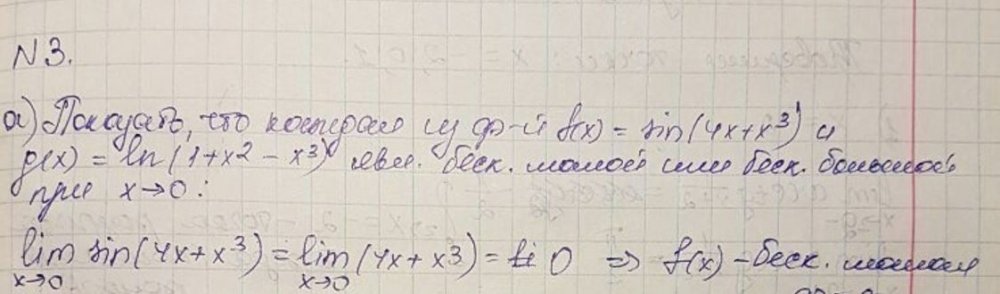 N3.
а) Показать, что которая из ф-й f(x) = sin(4x+x³) и
g(x) = ln(1+x² − x³) явл. беск. малой или беск. большой
при x→0:
lim sin(4x+x³) = lim (4x+x³) = 0 ⇒ f(x) – беск. малая
x→0 x→0